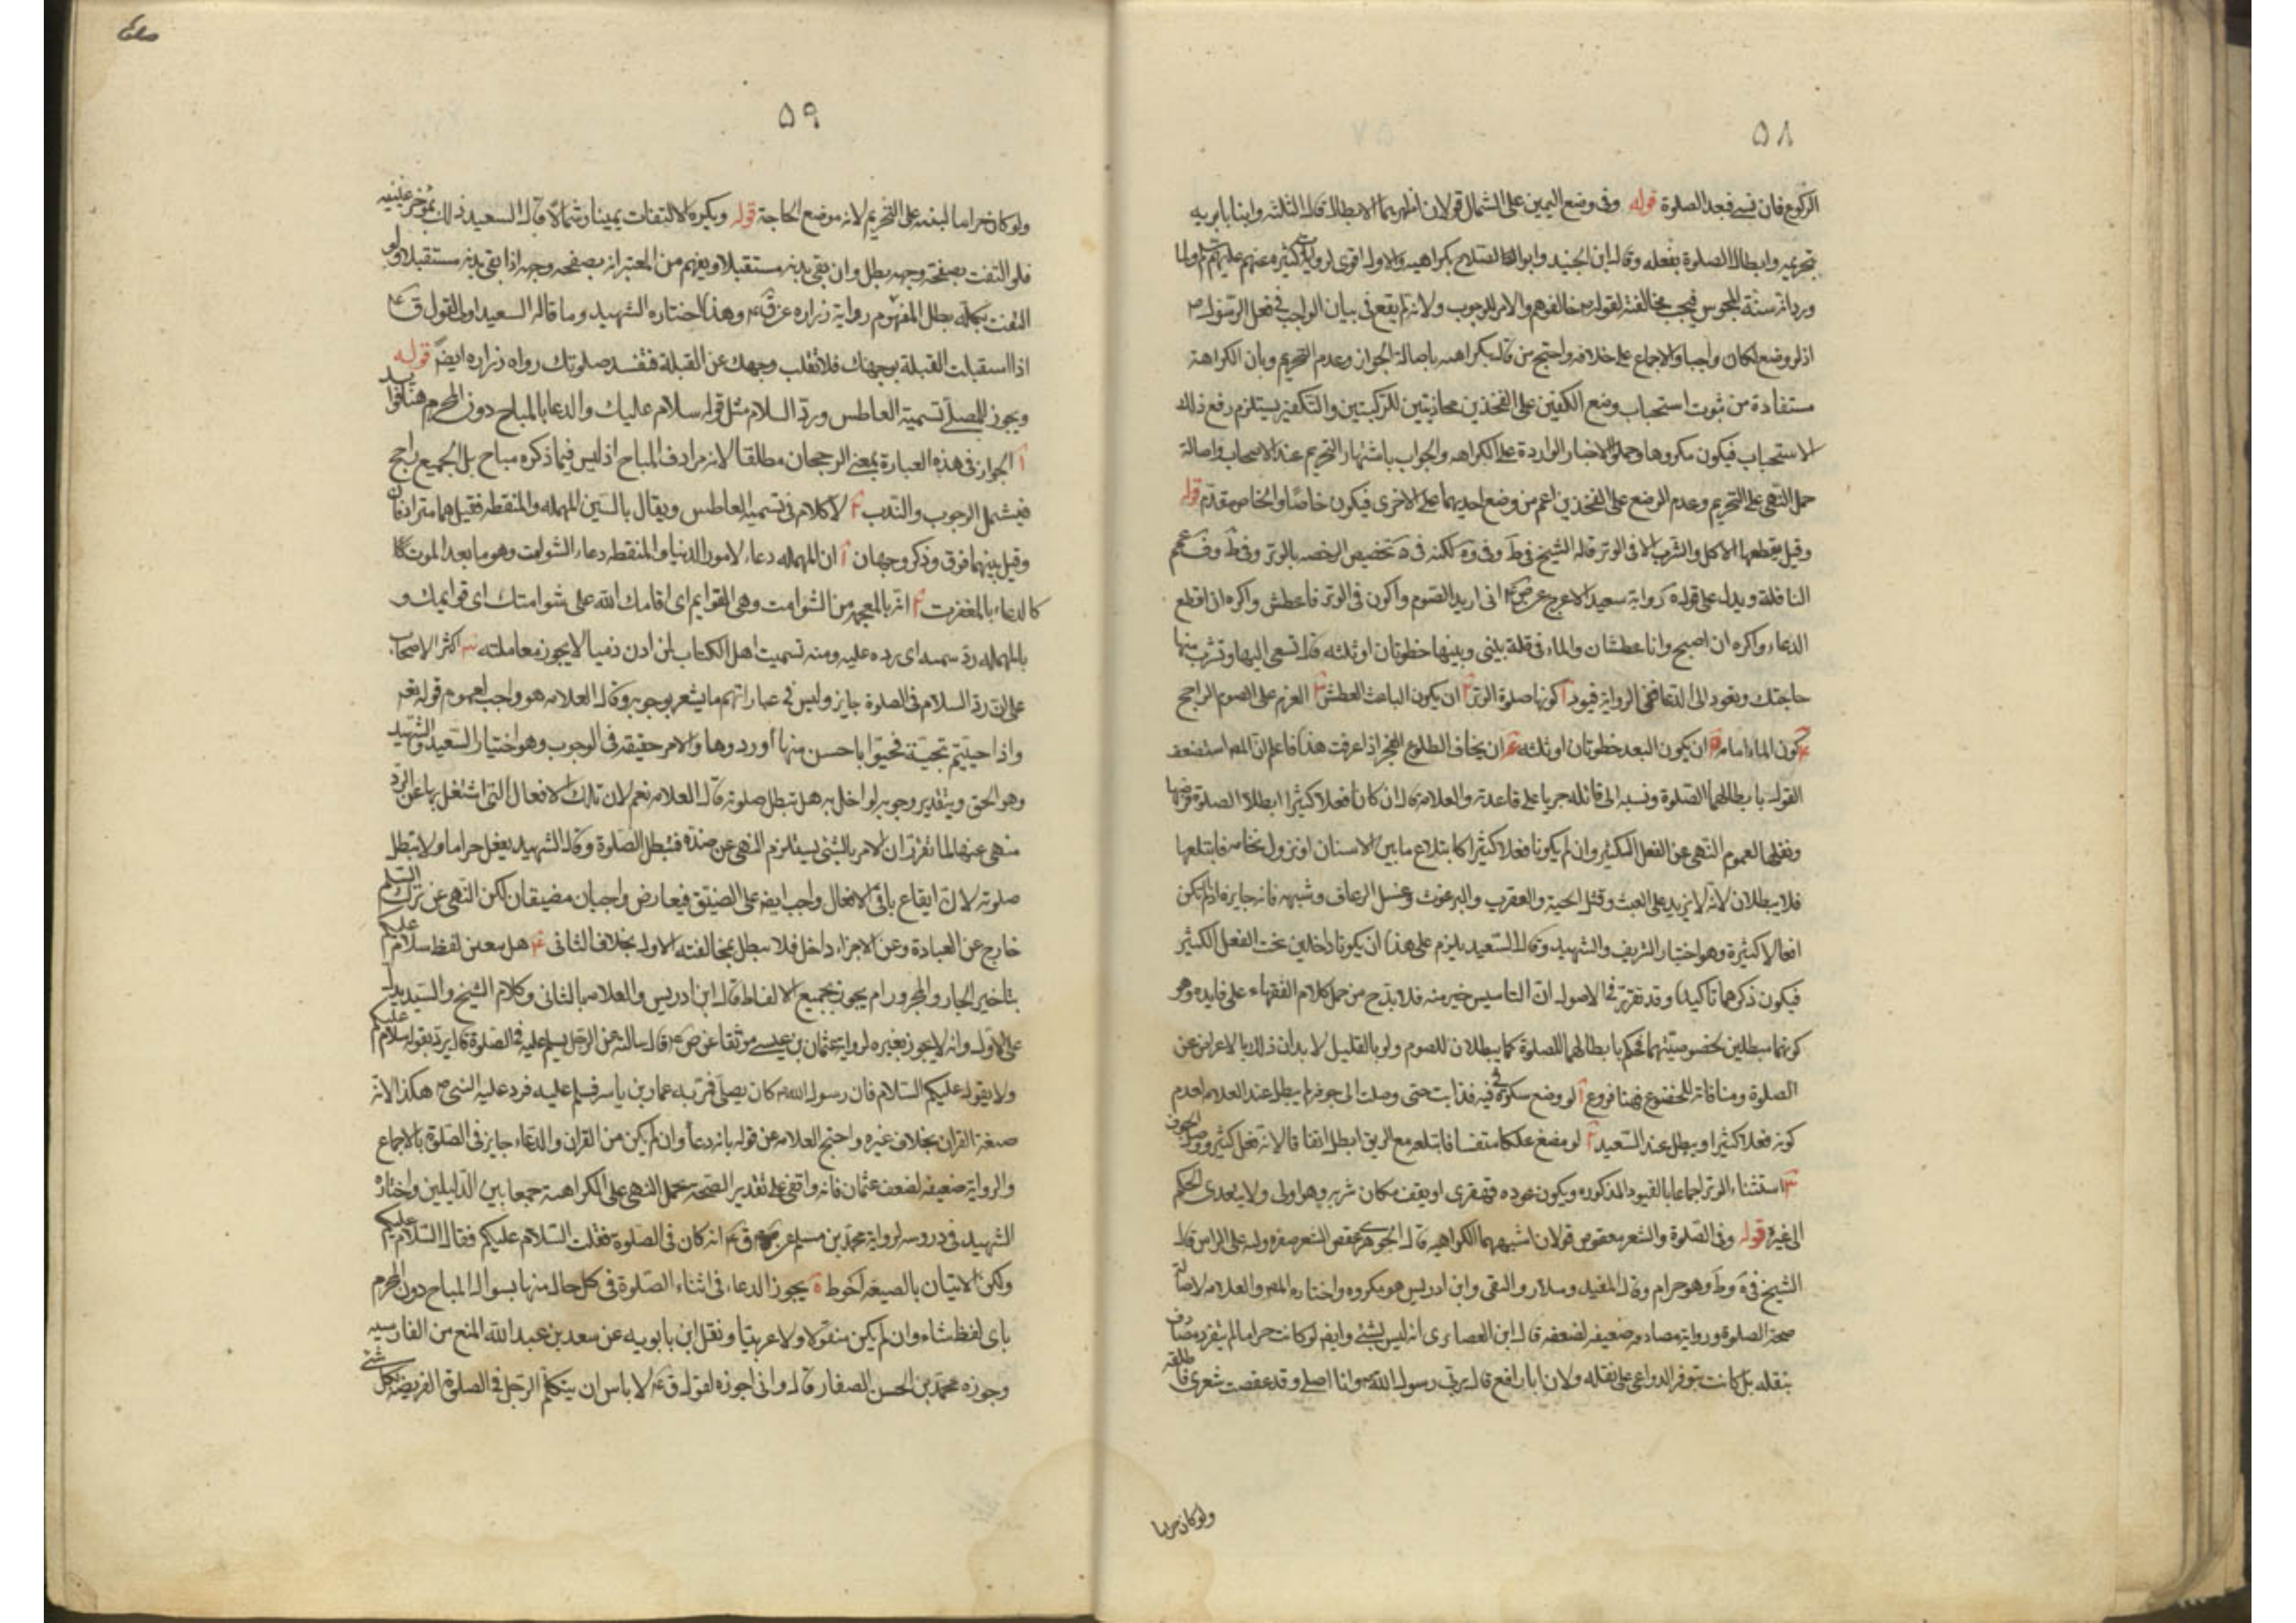 ۵۸
الركوع فان نسى فبعد الصلوة قوله وفى وضع اليمين على الشمال قولان اظهرهما الابطال قاله الثلثة وابنا بابويه
تحريمه وابطال الصلوة بفعله وقال ابن الجنيد وابو الصلاح بكراهيه والاول اقوى لروايات كثيره عنهم عليهم السلم ولما
ورد انه سنة للمجوس فيجب مخالفته لقوله ص خالفوهم والامر للوجوب ولانه لم يقع فى بيان الواجب فى فعل الرسول ص
اذ لو وضع لكان واجبا والاجماع على خلافه واحتج من قال بكراهيه باصالة الجواز وعدم التحريم وبان الكراهة
مستفادة من ثبوت استحباب وضع الكفين على الفخذين محاذيتين للركبتين والتكفير يستلزم رفع ذلك
الاستحباب فيكون مكروها وحملوا الاخبار الواردة على الكراهه والجواب باشتهار التحريم عند الاصحاب واصالة
حمل النهى على التحريم وعدم الوضع على الفخذين اعم من وضع احديهما على الاخرى فيكون خاصا والخاص مقدم قوله
وقيل يقطعها الاكل والشرب الا فى الوتر قاله الشيخ فى ط وفى وه لكنه فى ه تخصيص الرخصه بالوتر وفى ط وف عمم
النافلة ويدل على قوله رواية سعيد الاعرج عن ص ع انى اريد الصوم واكون فى الوتر فاعطش واكره ان اقطع
الدعاء واكره ان اصبح وانا عطشان والماء فى قلة بينى وبينها خطوتان او ثلثه قال تسعى اليها وتشرب منها
حاجتك وتعود الى الدعا ففى الرواية قيود آ كونها صلوة الوتر ٢ ان يكون الباعث العطش ٣ العزم على الصوم الراجح
٤ كون الماء امامه ٥ ان يكون البعد خطوتان او ثلثه ٦ ان يخاف الطلوع للفجر اذا عرفت هذا فاعلم ان المص استضعف
القول بابطالهما الصلوة ونسبه الى قائله جريا على قاعدته والعلامه قال ان كانا فعلا كثيرا ابطلا الصلوة فرضها
ونفلها لعموم النهى عن الفعل الكثير وان لم يكونا فعلا كثيرا كابتلاع ما بين الاسنان او نزول نخامه فابتلعها
فلا يبطلان لانه لا يزيد على العبث وقتل الحية والعقرب والبرغوث وغسل الرعاف وشبهه فانه جايز ما لم تكن
افعالا كثيرة وهو اختيار الشريف والشهيد وقال السعيد يلزم على هذا ان يكونا داخلين تحت الفعل الكثير
فيكون ذكرهما تاكيدا وقد تقرر فى الاصول ان التاسيس خير منه فلا بد ح من حمل كلام الفقهاء على فايده وهو
كونهما مبطلين بخصوصيتهما فحكم بابطالهما للصلوة كما يبطلان للصوم ولو بالقليل لايذان ذلك بالاعراض عن
الصلوة ومنافاته للخضوع فهنا فروع آ لو وضع سكرة فى فيه فذابت حتى وصلت الى جوفه لم يبطل عند العلامه لعدم
كونه فعلا كثيرا ويبطل عند السعيد ٢ لو مضغ علكا متفتتا فابتلعه مع الريق ابطل اتفاقا لانه فعل كثير ووصل الجوف
٣ استثناء الوتر اجماعا بالقيود المذكوره ويكون عوده قهقرى او يقف مكان شربه وهو اولى ولا يتعدى الحكم
الى غيره قوله وفى الصلوة والشعر معقوص قولان اشبههما الكراهيه قال الجوهرى عقص الشعر ضفره وليه على الراس قال
الشيخ فى ه وط وهو حرام وقال المفيد وسلار والتقى وابن ادريس هو مكروه واختاره المص والعلامه لاصالة
صحة الصلوة ورواية مصادف ضعيفه لضعفه قال ابن الغضايرى انه ليس بشئ وايضا لو كانت حراما لم ينفرد مصادف
بنقله بل كانت تتوفر الدواعى على نقله ولان ابا رافع قال مر بى رسول الله ص وانا اصلى وقد عقصت شعرى فاطلقه
ولو كان حراما
۵۹
ولو كان حراما لنبه على التحريم لانه موضع الحاجة قوله ويكره الالتفات يمينا وشمالا قال السعيد ذلك بمؤخر عينيه
فلو التفت بصفحة وجهه بطل وان بقى بدنه مستقبلا ويفهم من المعتبر انه بصفحه وجهه اذا بقى بدنه مستقبلا ولو
التفت بكله بطل المفهوم رواية زراره عن ق ع وهذا اختاره الشهيد وما قاله السعيد اولى لقول ق ع
اذا استقبلت القبلة بوجهك فلا تقلب وجهك عن القبلة فتفسد صلوتك رواه زراره ايضا قوله
ويجوز للمصلى تسمية العاطس ورد السلام مثل قوله سلام عليك والدعا بالمباح دون المحرم هنا فوايد
آ الجواز فى هذه العبارة بمعنى الرجحان مطلقا لانه مرادف المباح اذ ليس فيما ذكره مباح بل الجميع راجح
فيشمل الوجوب والندب ٢ لا كلام فى تسمية العاطس ويقال بالسين المهمله والمنقطه فقيل هما مترادفان
وقيل بينهما فرق وذكر وجهان آ ان المهمله دعاء لامور الدنيا والمنقطه دعاء الشوامت وهو ما بعد الموت كا
كالدعاء بالمغفرت ٢ انه بالمعجمه من الشوامت وهى القوايم اى اقامك الله على شوامتك اى قوايمك و
بالمهمله رد سمته اى برده عليه ومنه تسميت اهل الكتاب اكثر الاصحاب
على ان رد السلام فى الصلوة جايز وليس فى عباراتهم ما يشعر بوجوبه وقال العلامه هو واجب لعموم قوله تعه
واذا حييتم بتحية فحيوا باحسن منها او ردوها والامر حقيقة فى الوجوب وهو اختيار السعيد والشهيد
وهو الحق وبتقدير وجوبه لو اخل به هل تبطل صلوته قال العلامه نعم لان تلك الافعال التى اشتغل بها عن الرد
منهى عنها لما تقرر ان الامر بالشئ يستلزم النهى عن ضده فتبطل الصلوة وقال الشهيد يفعل حراما ولا تبطل
صلوته لان ايقاع باقى الافعال واجب ايضا على الضيق فيعارض واجبان مضيقان لكن النهى عن ترك السلم
خارج عن العبادة وعن الاجزاء داخل فلا تبطل بمخالفته الاول بخلاف الثانى ٤ هل يتعين لفظ سلام عليكم
بتاخير الجار والمجرور ام يجوز بجميع الالفاظ قال ابن ادريس والعلامه بالثانى وكلام الشيخ والسيد يدل
على الاول وانه لا يجوز بغيره لرواية عثمان بن عيسى موثقا عن ص ع قال سالته عن الرجل يسلم عليه فى الصلوة قال يرد بقوله سلام عليكم
ولا يقول عليكم السلام فان رسول الله ص كان يصلى فمر به عمار بن ياسر فسلم عليه فرد عليه النبى ص هكذا لانه
صيغة القران بخلاف غيره واحتج العلامه عن قوله بانه دعا وان لم يكن من القران والدعاء جايز فى الصلوة بالاجماع
والرواية ضعيفه لضعف عثمان فانه واقفى على تقدير الصحه يحمل النهى على الكراهة جمعا بين الدليلين واختاره
الشهيد فى دروسه لرواية محمد بن مسلم عن ق ع انه كان فى الصلوة فقلت السلام عليكم فقال السلام عليكم
ولكن الاتيان بالصيغه احوط ٥ يجوز الدعاء فى اثناء الصلوة فى كل حال منها بسوال المباح دون المحرم
باى لفظ شاء وان لم يكن منقولا ولا عربيا ونقل ابن بابويه عن سعد بن عبد الله المنع من الفارسيه
وجوزه محمد بن الحسن الصفار قال وانى اجوزه لقول ق ع لا باس ان يتكلم الرجل فى الصلوة الفريضه بكل شئ